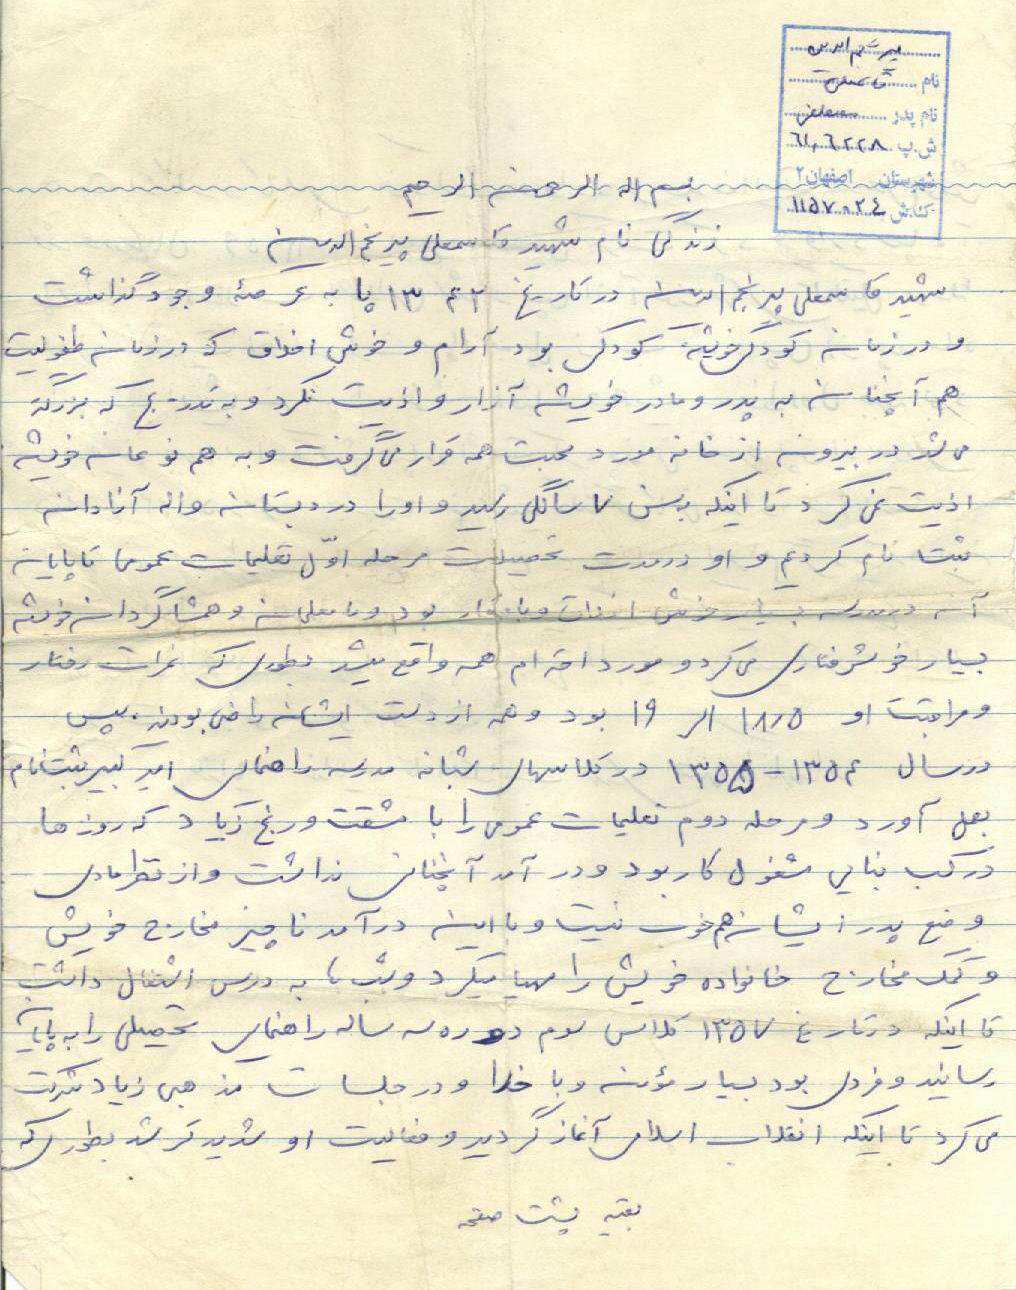 پیر نجم الدین
نام قاسمعلی
نام پدر
ش.پ ۶۱,۶۲۲۸
شهرستان اصفهان ۲
کتابش ۱۱۵۷۰۰۲۴
بسم اله الرحمن الرحیم
زندگی نام شهید قاسمعلی پیر نجم الدین
شهید قاسمعلی پیر نجم الدین در تاریخ ۱۳۴۲ پا به عرصهٔ وجود گذاشت
و در زمان کودکی خویش کودکی بود آرام و خوش اخلاق که در زمان طفولیت
هم آنچنان به پدر و مادر خویش آزار و اذیت نکرد و به تدریج که بزرگتر
می شد در بیرون از خانه مورد محبت همه قرار می گرفت و به هم نوعان خویش
اذیت نمی کرد تا اینکه بسن ۷ سالگی رسید و او را در دبستان واله آنادان
ثبت نام کردیم و او در مدت تحصیلات مرحله اوّل تعلیمات عمومی تا پایان
آن در مدرسه بسیار خوش اخلاق و با وقار بود و با معلمان و همشاگردان خویش
بسیار خوشرفتاری می کرد و مورد احترام همه واقع میشد بطوری که نمرات رفتار
و مراقبت او ۱۸٫۵ الی ۱۹ بود و همه از دست ایشان راضی بودند، سپس
در سال ۱۳۵۴-۱۳۵۵ در کلاسهای شبانه مدرسه راهنمائی امیر کبیر ثبت نام
بعمل آورد و مرحله دوم تعلیمات عمومی را با مشقت و رنج زیاد که روزها
در کسب بنایی مشغول کار بود و در آمد آنچنانی نداشت و از نظر مادی
وضع پدر ایشان هم خوب نیست و با این درآمد ناچیز مخارج خویش
و کمک مخارج خانواده خویش را مهیا میکرد و شب ها به درس اشتغال داشت
تا اینکه در تاریخ ۱۳۵۷ کلاس سوم دوره سه ساله راهنمائی تحصیلی را به پایان
رسانید و فردی بود بسیار مؤمن و با خدا و در جلسات مذهبی زیاد شرکت
می کرد تا اینکه انقلاب اسلامی آغاز گردید و فعالیت او شدیدتر شد بطوری که
بقیه پشت صفحه